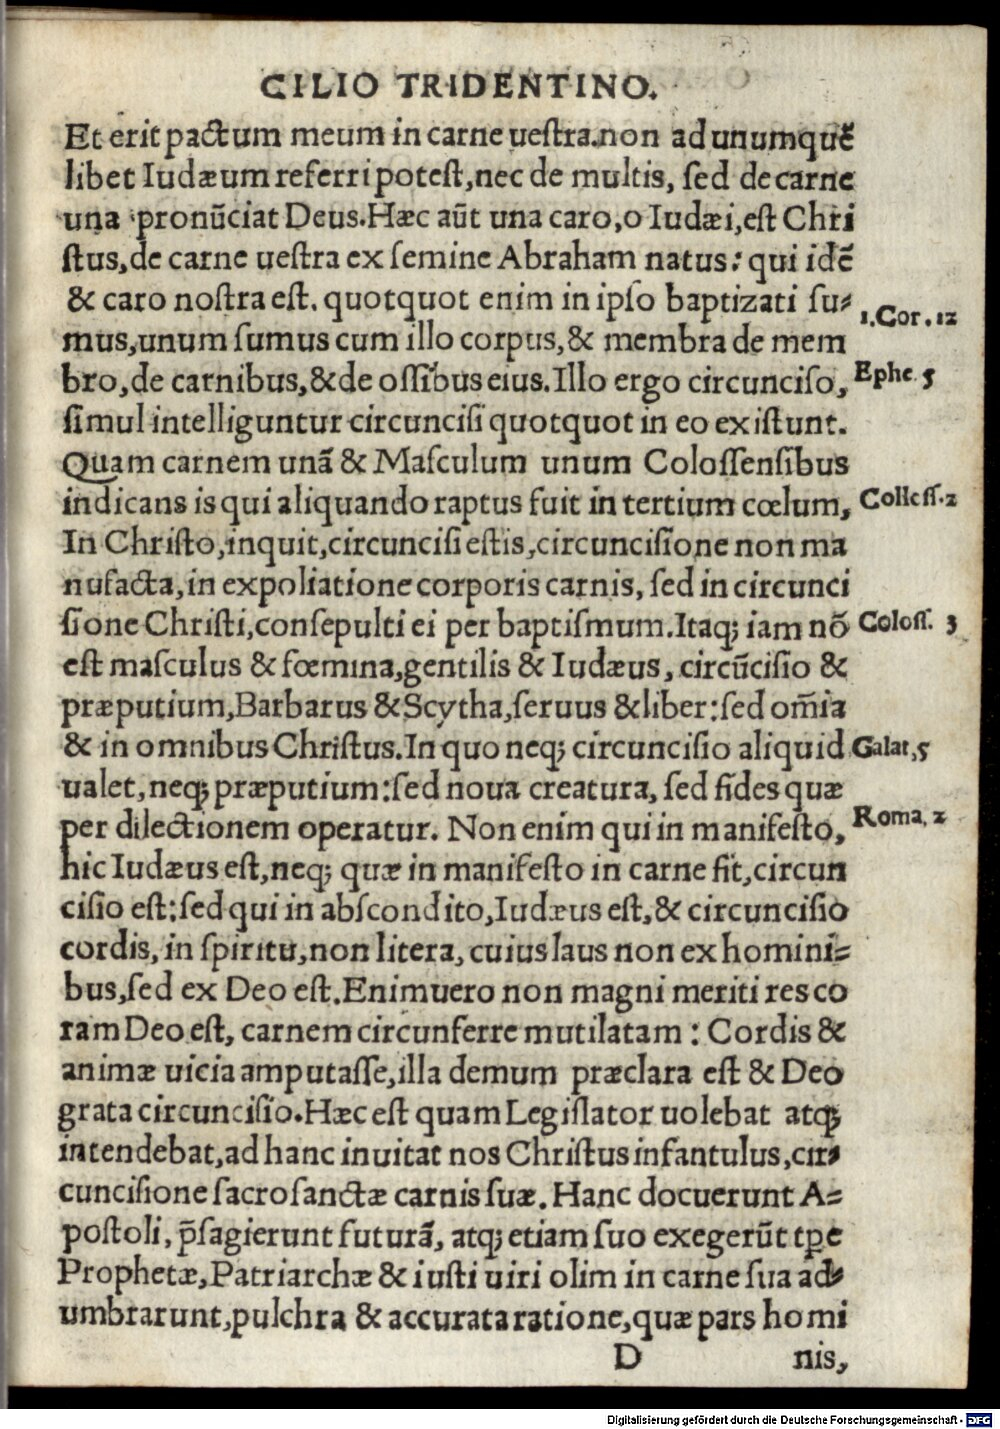 CILIO TRIDENTINO.
Et erit pactum meum in carne ueſtra. non ad unumquẽ
libet Iudæum referri poteſt, nec de multis, ſed de carne
una pronũciat Deus. Hæc aũt una caro, o Iudæi, eſt Chri
ſtus, de carne ueſtra ex ſemine Abraham natus: qui idẽ
& caro noſtra eſt. quotquot enim in ipſo baptizati ſu⸗
1. Cor. 12
mus, unum ſumus cum illo corpus, & membra de mem
bro, de carnibus, & de oſſibus eius. Illo ergo circunciſo,
Ephe. 5
ſimul intelliguntur circunciſi quotquot in eo exiſtunt.
Quam carnem unã & Maſculum unum Coloſſenſibus
indicans is qui aliquando raptus fuit in tertium cœlum,
Colleſſ. 2
In Chriſto, inquit, circunciſi eſtis, circunciſione non ma
nufacta, in expoliatione corporis carnis, ſed in circunci
ſione Chriſti, conſepulti ei per baptiſmum. Itaq; iam nõ
Coloſſ. 3
eſt maſculus & fœmina, gentilis & Iudæus, circũciſio &
præputium, Barbarus & Scytha, ſeruus & liber: ſed om̃ia
& in omnibus Chriſtus. In quo neq; circunciſio aliquid
Galat, 5
ualet, neq; præputium: ſed noua creatura, ſed fides quæ
per dilectionem operatur. Non enim qui in manifeſto,
Roma, 2
hic Iudæus eſt, neq; quæ in manifeſto in carne fit, circun
ciſio eſt: ſed qui in abſcondito, Iudæus eſt, & circunciſio
cordis, in ſpiritu, non litera, cuius laus non ex homini⸗
bus, ſed ex Deo eſt. Enimuero non magni meriti res co
ram Deo eſt, carnem circunferre mutilatam: Cordis &
animæ uicia amputaſſe, illa demum præclara eſt & Deo
grata circunciſio. Hæc eſt quam Legiſlator uolebat atq;
intendebat, ad hanc inuitat nos Chriſtus infantulus, cir⸗
cunciſione ſacroſanctæ carnis ſuæ. Hanc docuerunt A⸗
poſtoli, p̃ſagierunt futurã, atq; etiam ſuo exegerũt tꝑe
Prophetæ, Patriarchæ & iuſti uiri olim in carne ſua ad⸗
umbrarunt, pulchra & accurata ratione, quæ pars homi
D nis,
Digitalisierung gefördert durch die Deutsche Forschungsgemeinschaft - DFG